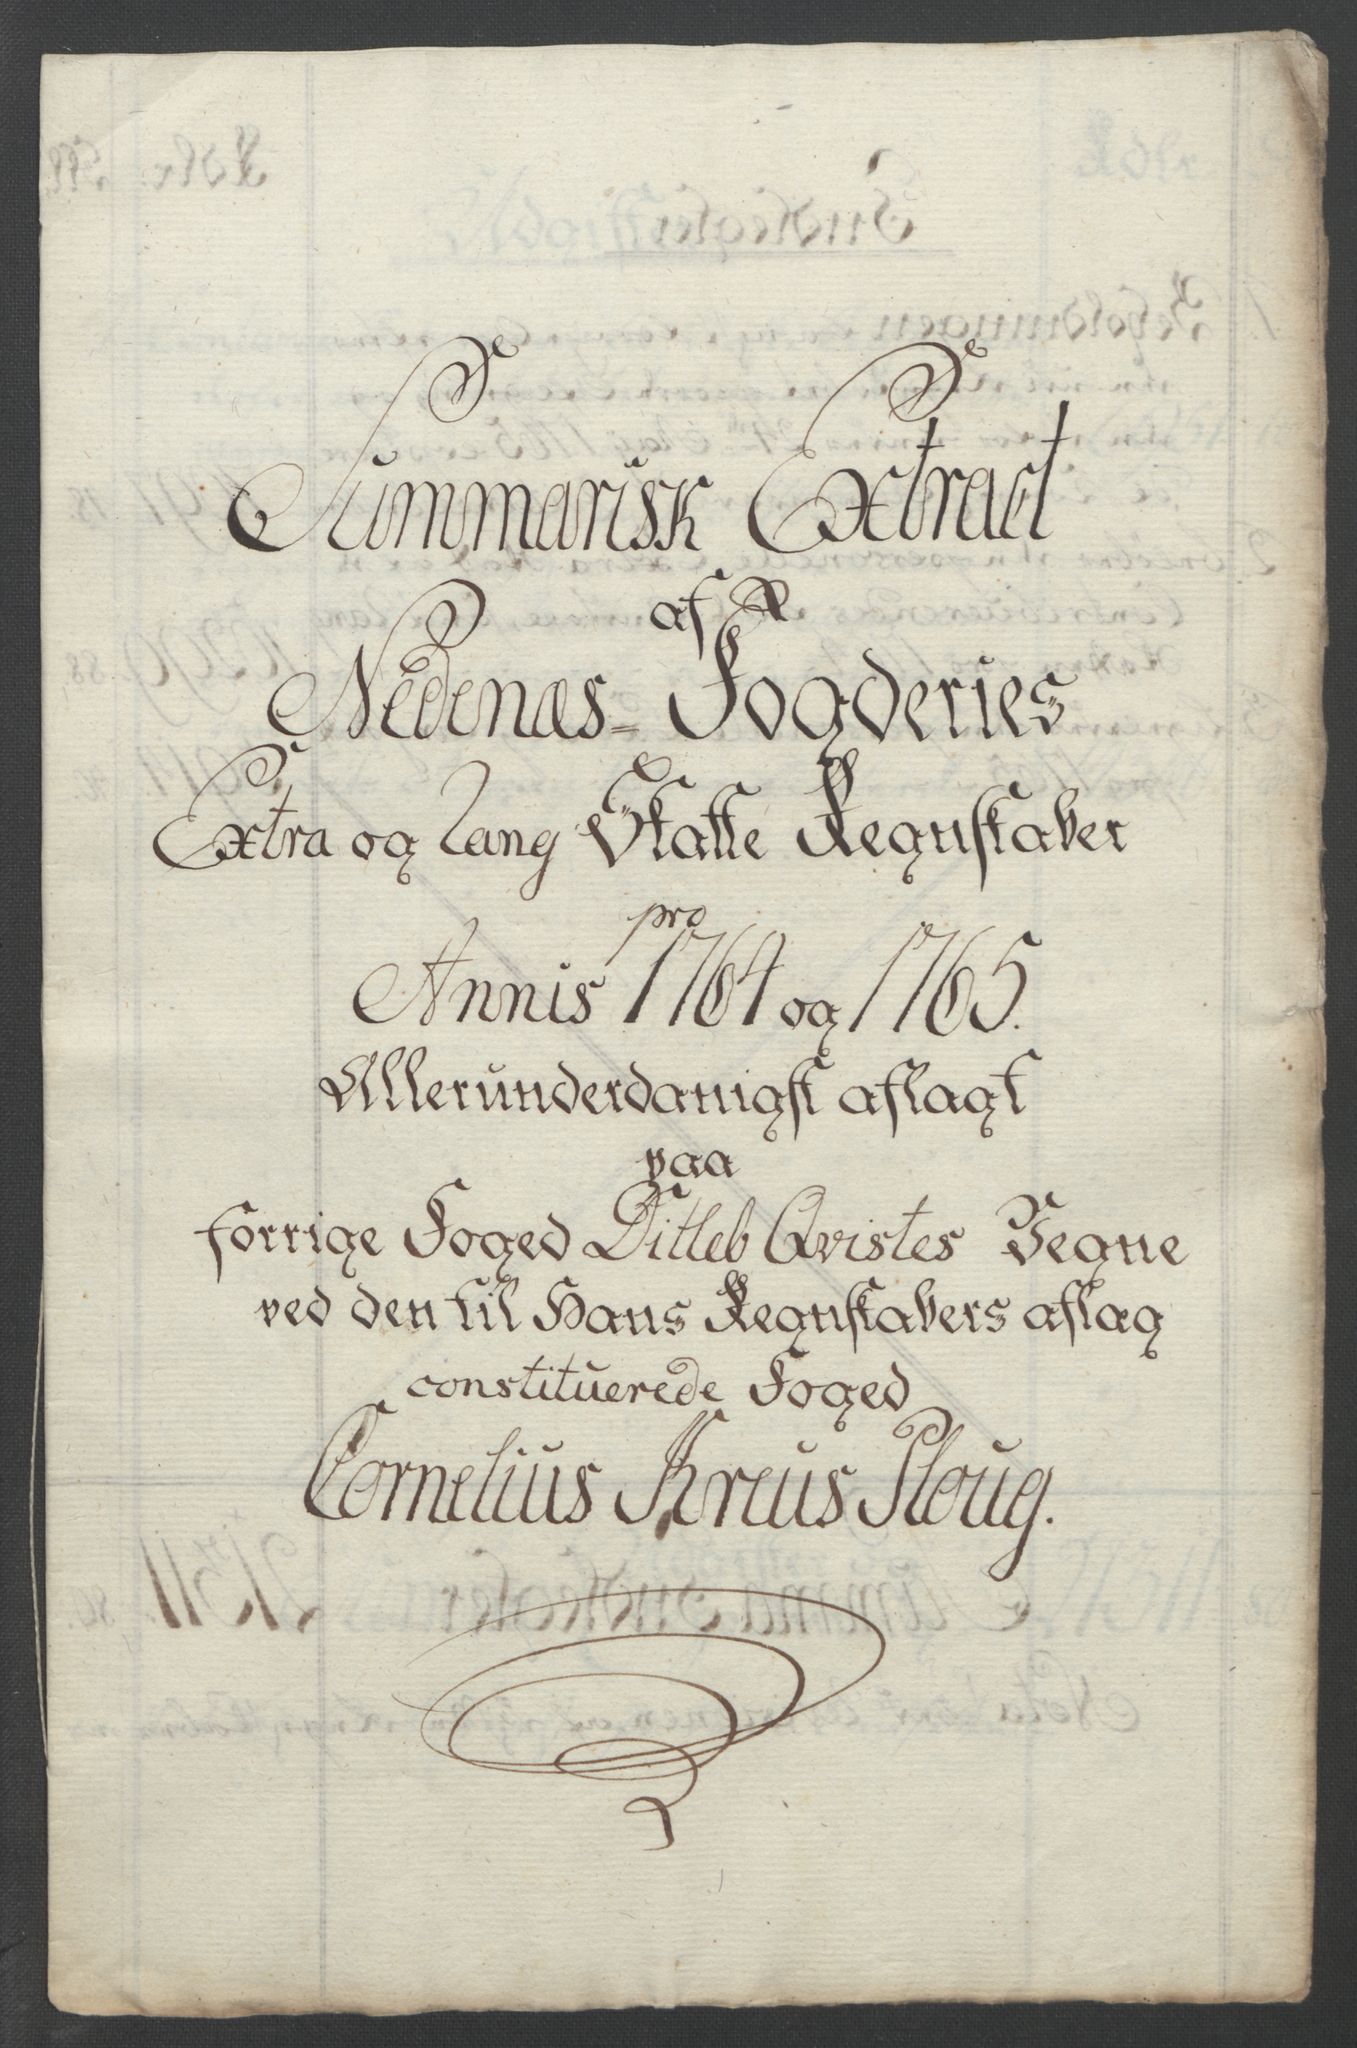 Summarisk Extract
af
Nedenæs- Fogderies
Extra og Lang Skatte Regnskaber
pro
Annis 1764 og 1765.
Allerunderdanigst aflagt
paa
forrige Foged Ditleb Qvistes Vegne
ved den til Hans Regnskabers aflæg
constituerede Foged
Cornelius Kreüs Ploug.